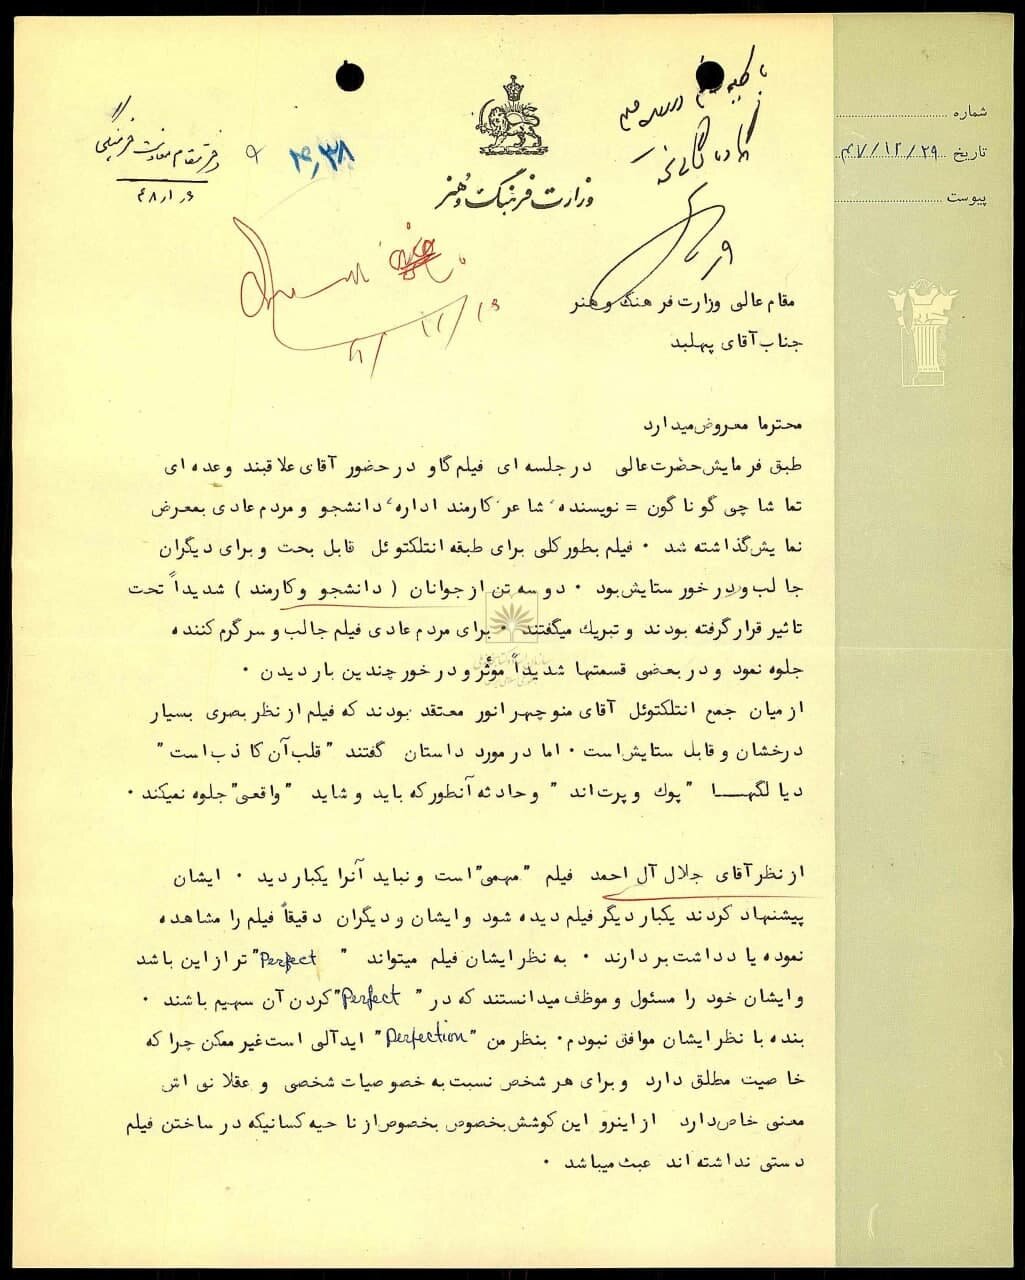 شماره
تاریخ ۴۷/۱۲/۲۹
پیوست
وزارت فرهنگ و هنر
دفتر مقام معاونت فرهنگی
۴۰۳۸
مقام عالی وزارت فرهنگ و هنر
جناب آقای پهلبد
محترما معروض میدارد
طبق فرمایش حضرت عالی در جلسه ای فیلم گاو در حضور آقای علاقبند و عده ای
تماشاچی گوناگون = نویسنده، شاعر، کارمند اداره، دانشجو و مردم عادی بمعرض
نمایش گذاشته شد ۰ فیلم بطور کلی برای طبقه انتلکتوئل قابل بحث و برای دیگران
جالب و در خور ستایش بود ۰ دو سه تن از جوانان ( دانشجو و کارمند ) شدیداً تحت
تاثیر قرار گرفته بودند و تبریک میگفتند ۰ برای مردم عادی فیلم جالب و سرگرم کننده
جلوه نمود و در بعضی قسمتها شدیداً مؤثر و در خور چندین بار دیدن ۰
از میان جمع انتلکتوئل آقای منوچهر انور معتقد بودند که فیلم از نظر بصری بسیار
درخشان و قابل ستایش است ۰ اما در مورد داستان گفتند "قلب آن کاذب است"
دیالگهـــا "پوک و پرت اند" و حادثه آنطور که باید و شاید "واقعی" جلوه نمیکند ۰
از نظر آقای جلال آل احمد فیلم "مهمی" است و نباید آنرا یکبار دید ۰ ایشان
پیشنهاد کردند یکبار دیگر فیلم دیده شود و ایشان و دیگران دقیقاً فیلم را مشاهده
نموده یادداشت بردارند ۰ به نظر ایشان فیلم میتواند "Perfect" تر از این باشد
و ایشان خود را مسئول و موظف میدانستند که در "Perfect" کردن آن سهیم باشند ۰
بنده با نظر ایشان موافق نبودم ۰ بنظر من "Perfection" ایدآلی است غیر ممکن چرا که
خاصیت مطلق دارد و برای هر شخص نسبت به خصوصیات شخصی و عقلانی اش
معنی خاص دارد از اینرو این کوشش بخصوص بخصوص از ناحیه کسانیکه در ساختن فیلم
دستی نداشته اند عبث میباشد ۰